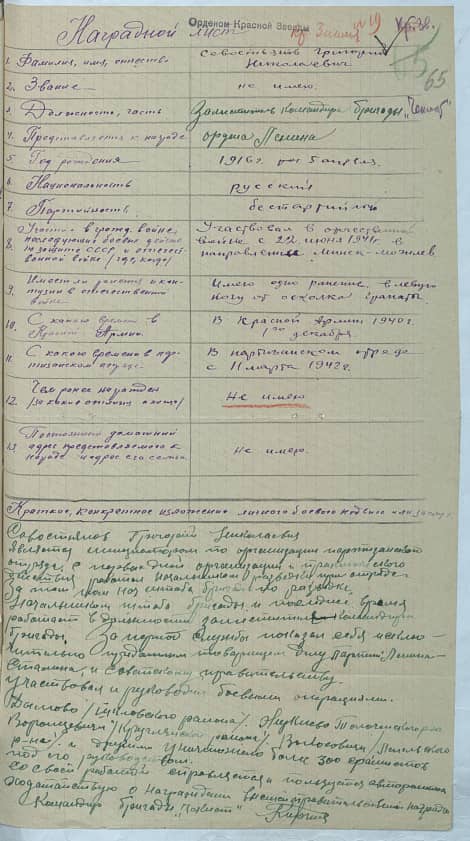 Орденом Красной Звезды
Наградной лист
пр. Знамя №19
65
1. Фамилия, имя, отчество
Савостьянов Григорий Николаевич
2. Звание
не имею.
3. Должность, часть
Заместитель командира бригады "Чекист"
4. Представляется к награде
ордена Ленина
5. Год рождения
1916 г.
6. Национальность
русский
7. Партийность
беспартийный
8. Участие в гражд. войне, последующих боевых действ. по защите СССР и отечественной войне /где, когда/
Участвовал в отечественной войне с 22 июня 1941 г. в направлении Минск-Могилев
9. Имеет ли ранения и контузии в отечественной войне
Имею одно ранение в левую ногу от осколка гранаты.
10. С какого времени в Красной Армии
В Красной Армии 1940 г. декабря.
11. С какого времени в партизанском отряде
В партизанском отряде с 11 марта 1942 г.
12. Чем ранее награжден /за какие отличия и когда/
Не имею
13. Постоянный домашний адрес представляемого к награде и адрес его семьи
Не имею.
Краткое, конкретное изложение личного боевого подвига или заслуг:
Савостьянов Григорий Николаевич
является инициатором по организации партизанского
отряда, с первых дней организации и практического
действия работал начальником разведки при отряде.
За тем пом нач. штаба бригады по разведке,
Начальником штаба бригады, и последнее время
работает в должности заместителя командира
бригады. За период службы показал себя исклю-
чительно преданным товарищем делу партии Ленина-
Сталина, и советскому правительству.
Участвовал и руководил боевыми операциями.
района/
Воронцевичи /Круглянского района/
р-на/ и другими уничтожено более 300 фашистов
под его руководством.
Со своей работой справляется и пользуется авторитетом
Ходатайствую о награждении правительственной награды
Командир бригады "Чекист" Кирпич